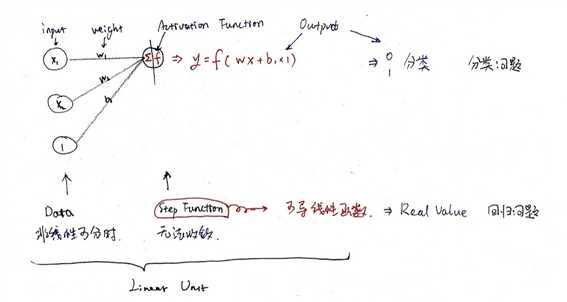 input weight Activation Function Outputs
x₁ w₁ Σf ⇒ y=f(wx+b,×1) ⇒ 0 分类 分类问题
1
x₂ w₂
b₁
1
Data Step Function → 可导线性函数. ⇒ Real Value 回归问题
非线性可分时. 无法收敛
Linear Unit